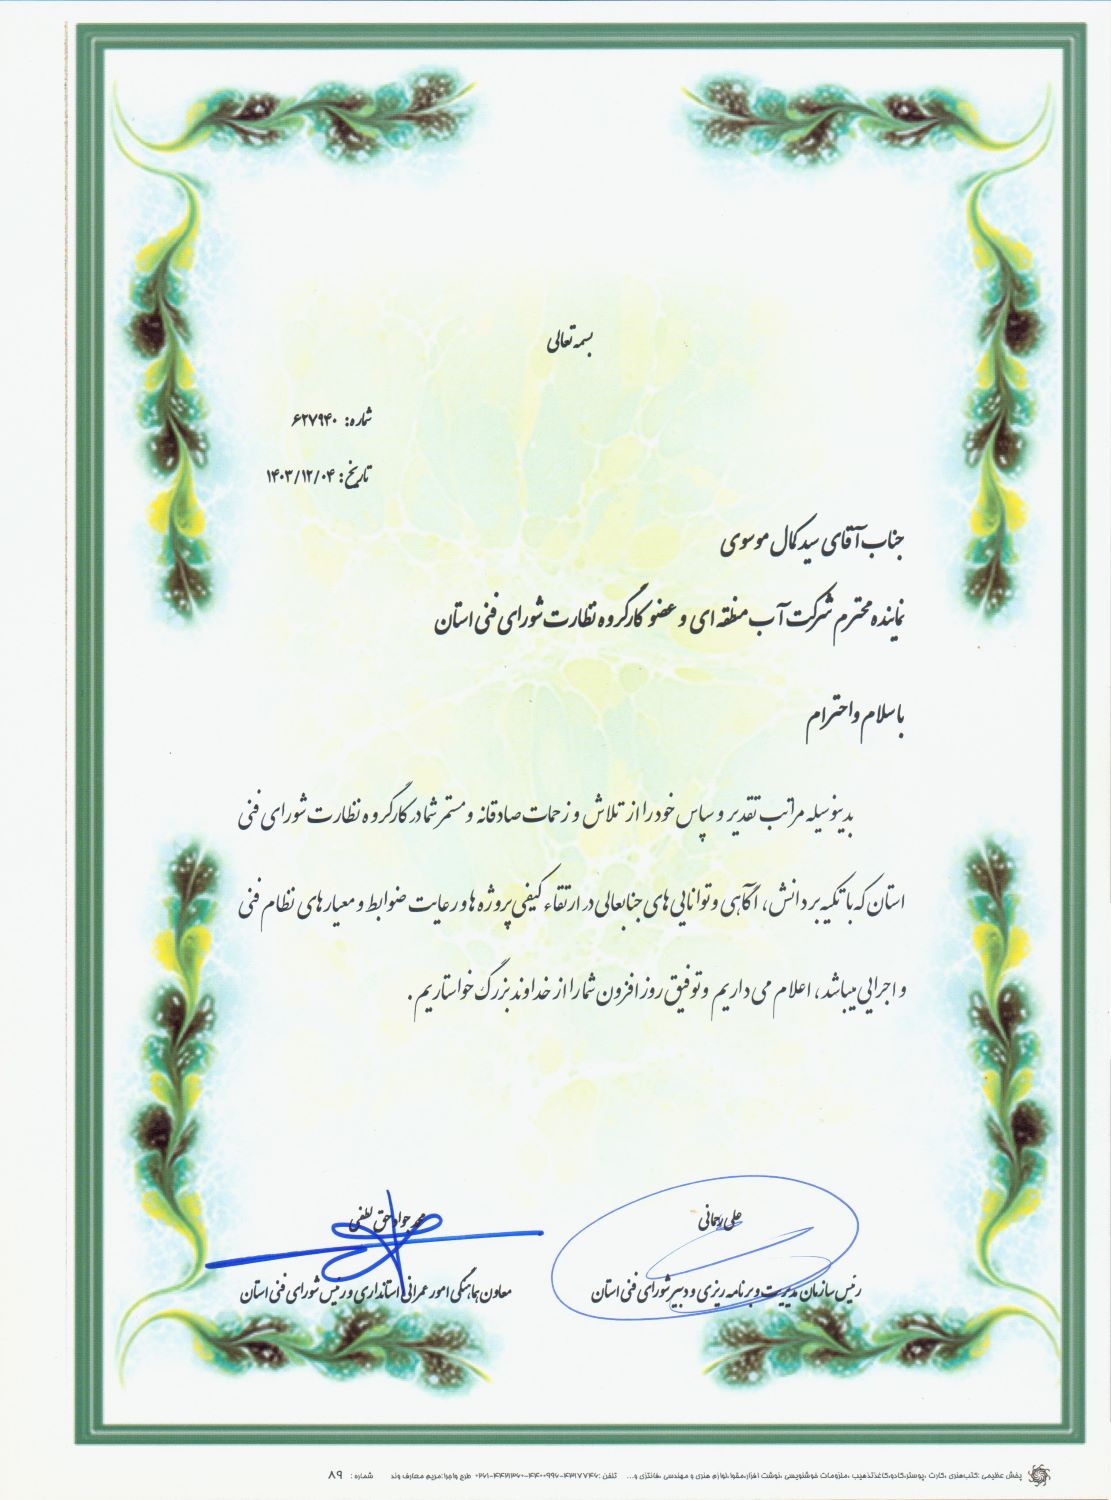 بسمه تعالی
شماره: ۶۲۷۹۴۰
تاریخ: ۱۴۰۳/۱۲/۰۴
جناب آقای سید کمال موسوی
نماینده محترم شرکت آب منطقه ای و عضو کارگروه نظارت شورای فنی استان
با سلام و احترام
بدینوسیله مراتب تقدیر و سپاس خود را از تلاش و زحمات صادقانه و مستمر شما در کارگروه نظارت شورای فنی
استان که با تکیه بر دانش، آگاهی و توانایی های جنابعالی در ارتقاء کیفی پروژه ها و رعایت ضوابط و معیارهای نظام فنی
و اجرایی میباشد، اعلام می داریم و توفیق روز افزون شما را از خداوند بزرگ خواستاریم.
علی رحمانی
رئیس سازمان مدیریت و برنامه ریزی و دبیر شورای فنی استان
محمد جواد حق لطفی
معاون هماهنگی امور عمرانی استانداری و رئیس شورای فنی استان
پخش عظیمی :کتب هنری ،کارت ،پوستر،کادو،کاغذتذهیب ،ملزومات خوشنویسی ،نوشت افزار،مقوا،لوازم هنری و مهندسی ،فانتزی و... تلفن: طرح واجرا:مریم معارف وند شماره: ۸۹